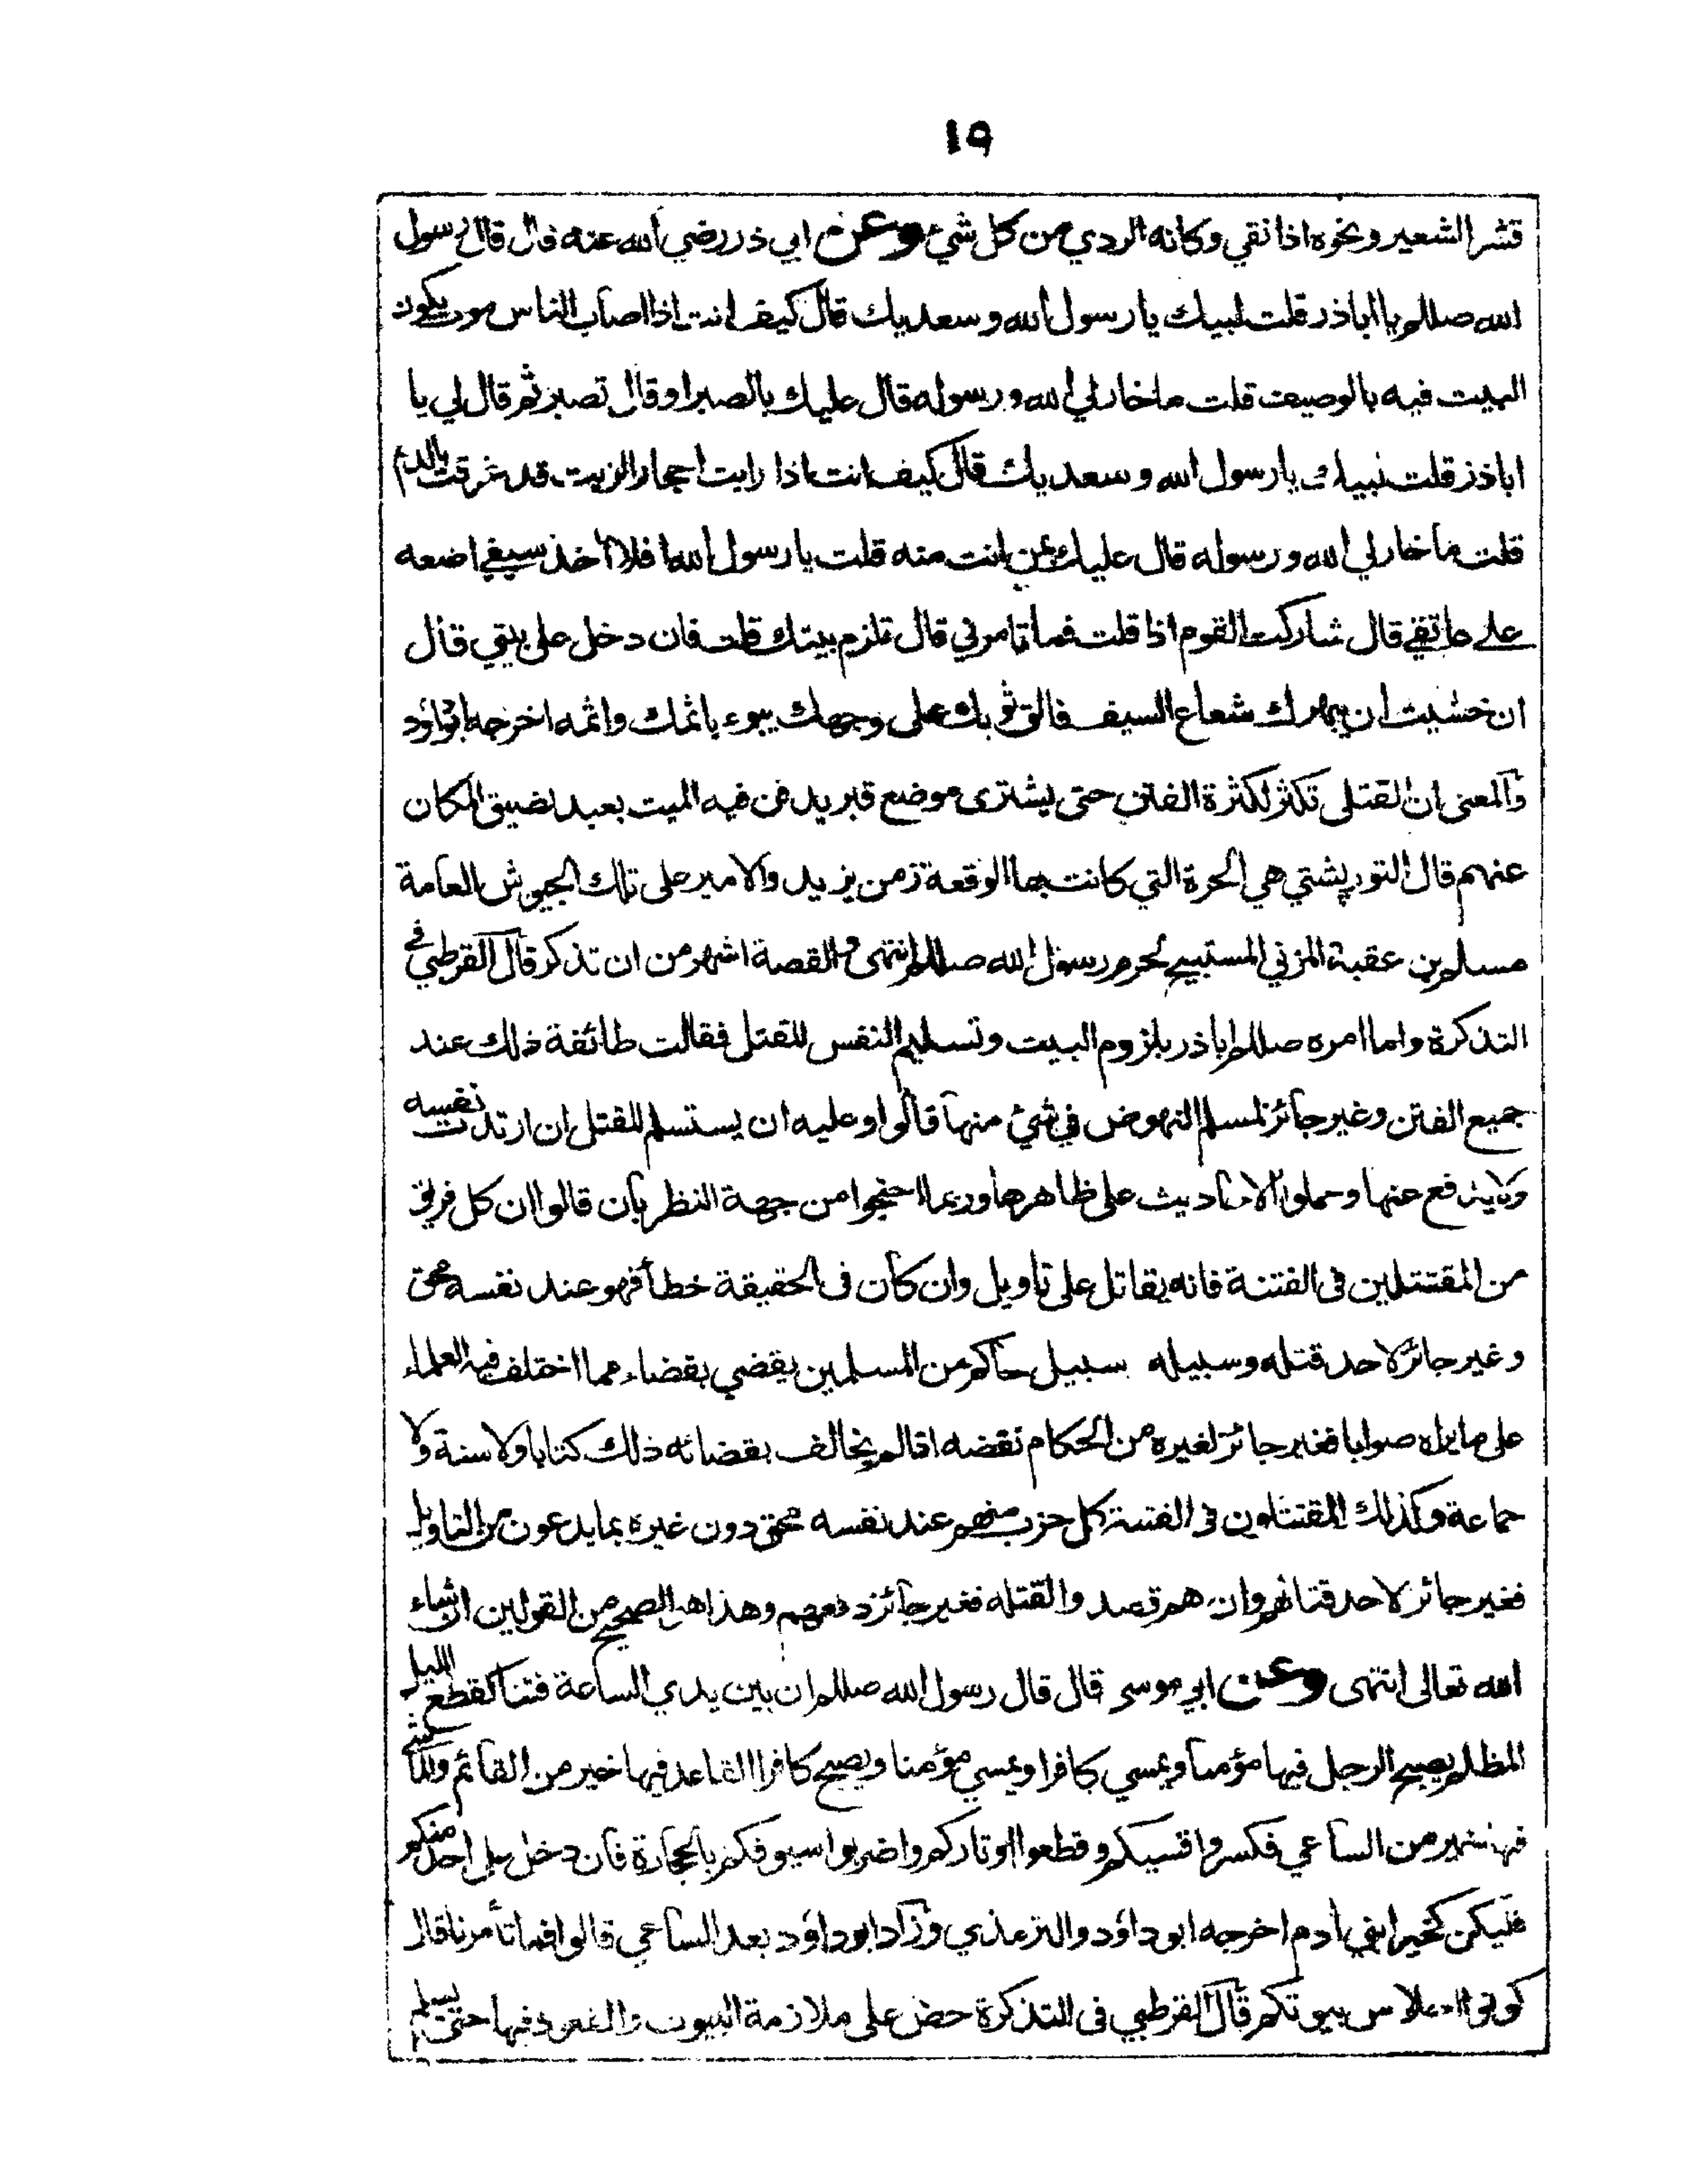 ١٩
قشر الشعير ونحوه اذا نقي وكانه الردي من كل شيء وعن ابي ذر رضي الله عنه قال قال رسول
الله صللم يا اباذر قلت لبيك يا رسول الله وسعديك قال كيف انت اذا اصاب الناس موت يكون
البيت فيه بالوصيف قلت ما خار لي الله ورسوله قال عليك بالصبر او قال تصبر ثم قال لي يا
اباذر قلت لبيك يا رسول الله وسعديك قال كيف انت اذا رايت احجار الزيت قد غرقت بالدم
قلت ما خار لي الله ورسوله قال عليك بمن انت منه قلت يا رسول الله افلا آخذ سيفي اضعه
على عاتقي قال شاركت القوم اذا قلت فما تامرني قال تلزم بيتك قلت فان دخل على بيتي قال
ان خشيت ان يبهرك شعاع السيف فالق ثوبك على وجهك يبوء باثمك واثمه اخرجه ابوداؤد
والمعنى ان القتلى تكثر لكثرة الفتن حتى يشترى موضع قبر يدفن فيه الميت بعبد لضيق المكان
عنهم قال التوربشتي هي الحرة التي كانت بها الوقعة زمن يزيد والامير على تلك الجيوش العامة
مسلم بن عقبة المزني المستبيح لحرم رسول الله صللم انتهى والقصة اشهر من ان تذكر قال القرطبي في
التذكرة واما امره صللم اباذر بلزوم البيت وتسليم النفس للقتل فقالت طائفة ذلك عند
جميع الفتن وغير جائز لمسلم النهوض في شيء منها قالوا وعليه ان يستسلم للقتل ان ارتدت نفسه
ولا يدفع عنها وحملوا الاحاديث على ظاهرها وربما احتجوا من جهة النظر بان قالوا ان كل فريق
من المقتتلين في الفتنة فانه يقاتل على تاويل وان كان في الحقيقة خطأ فهو عند نفسه محق
وغير جائز لاحد قتله وسبيله سبيل حاكم من المسلمين يقضي بقضاء مما اختلف فيه العلماء
على ما يراه صوابا فغير جائز لغيره من الحكام نقضه اذا لم يخالف بقضائه ذلك كتابا ولا سنة ولا
جماعة وكذلك المقتتلون في الفتنة كل حزب منهم عند نفسه محق دون غيره بما يدعون من التاويل
فغير جائز لاحد قتالهم وان هم قصدوا لقتله فغير جائز دفعهم وهذا هو الصحيح من القولين ان شاء
الله تعالى انتهى وعن ابي موسى قال قال رسول الله صللم ان بين يدي الساعة فتنا كقطع الليل
المظلم يصبح الرجل فيها مؤمنا ويمسي كافرا ويمسي مؤمنا ويصبح كافرا القاعد فيها خير من القائم والماشي
فيها خير من الساعي فكسروا قسيكم وقطعوا اوتاركم واضربوا سيوفكم بالحجارة فان دخل على احد منكم
فليكن كخير ابني آدم اخرجه ابوداؤد والترمذي وزاد ابوداؤد بعد الساعي قالوا فما تأمرنا قال
كونوا احلاس بيوتكم قال القرطبي في التذكرة حض على ملازمة البيوت والقعود فيها حتى يسلم